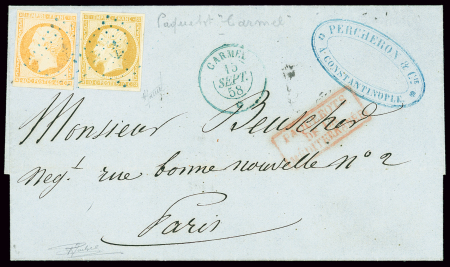 Paquebot "Carmel"
CARMEL
15
SEPT.
58
PERCHERON & Cie
A CONSTANTINOPLE.
Monsieur Beuscher
Negt. rue bonne nouvelle no 2
Paris